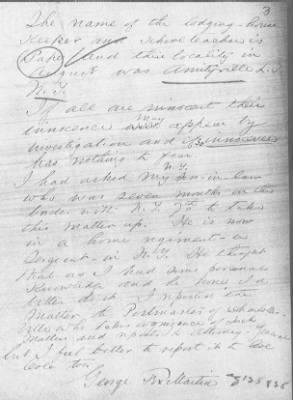 3
The name of the lodging-house
Keeper and School teacher is
Gage and their locality in
August was Amityville L.I
N.Y.
If all are innocent their
innocence will may appear by
investigation and innocence
has nothing to fear
I had asked my son-in-law N.Y.
who was seven months on the
border with N.Y. 7th to take
this matter up. He is now
in a home regiment - as
Sergeant - in N.Y. He thought
that as I had some personal
Knowledge and the time I'd
better do it. I reported the
matter, the Postmaster of
who takes cognizance of such
matters and reported to Attorney
but I feel better to report it to
George Martin